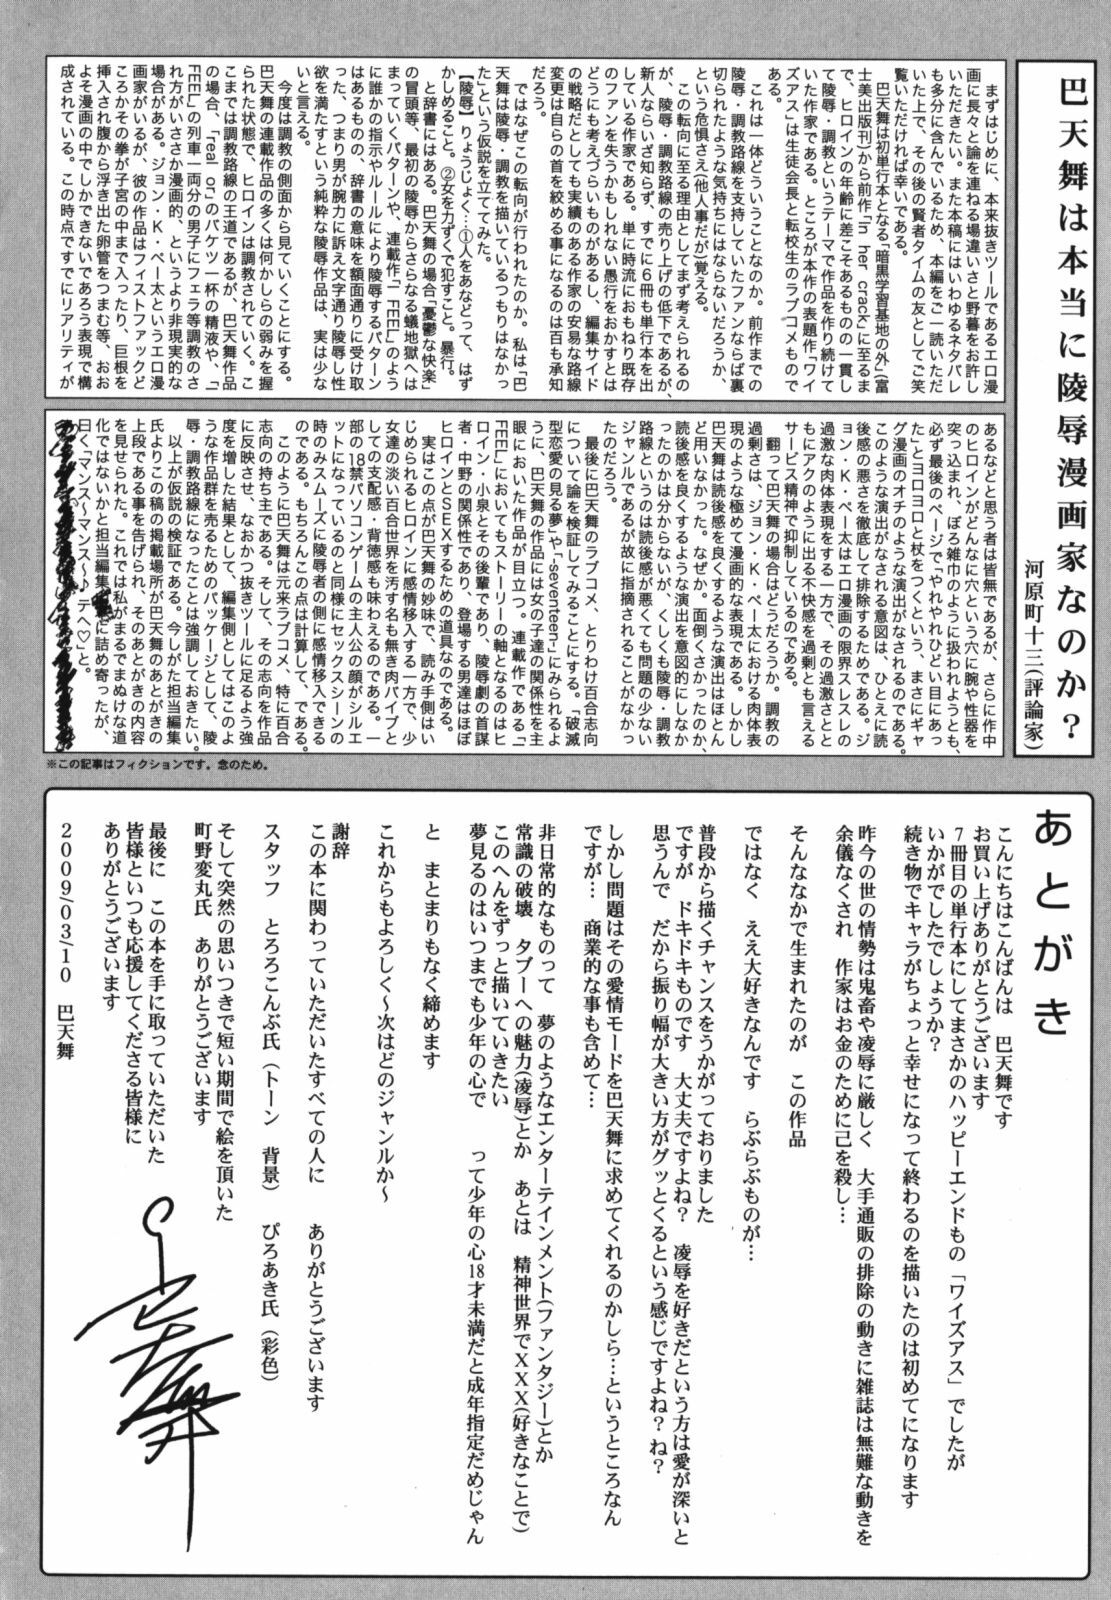 巴天舞は本当に陵辱漫画家なのか?
河原町十三(評論家)
まずはじめに、本来抜きツールであるエロ漫
画に長々と論を連ねる場違いさと野暮をお許し
いただきたい。また本稿にはいわゆるネタバレ
も多分に含んでいるため、本編をご一読いただ
いた上で、その後の賢者タイムの友としてご笑
覧いただければ幸いである。
巴天舞は初単行本となる「暗黒学習基地の外」(富
士美出版刊)から前作「In her crack」に至るま
で、ヒロインの年齢に差こそあるものの一貫し
て陵辱・調教というテーマで作品を作り続けて
いた作家である。ところが本作の表題作「ワイ
ズアス」は生徒会長と転校生のラブコメもので
ある。
これは一体どういうことなのか。前作までの
陵辱・調教路線を支持していたファンならば裏
切られたような気持ちにはならないだろうか、
という危惧さえ(他人事だが)覚える。
この転向に至る理由としてまず考えられるの
が、陵辱・調教路線の売り上げの低下であるが、
新人ならいざ知らず、すでに6冊も単行本を出
している作家である。単に時流におもねり既存
のファンを失うかもしれない愚行をおかすとは
どうにも考えづらいものがあるし、編集サイド
の戦略だとしても実績のある作家の安易な路線
変更は自らの首を絞める事になるのは百も承知
だろう。
ではなぜこの転向が行われたのか。私は「巴
天舞は陵辱・調教を描いているつもりはなかっ
た」という仮説を立ててみた。
【陵辱】りょうじょく…①人をあなどって、はず
かしめること。②女を力ずくで犯すこと。暴行。
と辞書にはある。巴天舞の場合「憂鬱な快楽」
の冒頭等、最初の陵辱からさらなる蟻地獄へは
まっていくパターンや、連載作「I FEEL」のよう
に誰かの指示やルールにより陵辱するパターン
はあるものの、辞書の意味を額面通りに受け取
った、つまり男が腕力に訴え文字通り陵辱し性
欲を満たすという純粋な陵辱作品は、実は少な
いと言える。
今度は調教の側面から見ていくことにする。
巴天舞の連載作品の多くは何かしらの弱みを握
られた状態で、ヒロインは調教されていく。こ
こまでは調教路線の王道であるが、巴天舞作品
の場合、「real or」のバケツ一杯の精液や、「I
FEEL」の列車一両分の男子にフェラ等調教のさ
れ方がいささか漫画的、というより非現実的な
場合がある。ジョン・K・ペー太というエロ漫
画家がいるが、彼の作品はフィストファックど
ころかその拳が子宮の中まで入ったり、巨根を
挿入され腹から浮き出た卵管をつまむ等、おお
よそ漫画の中でしかできないであろう表現で構
成されている。この時点ですでにリアリティが
あるなどと思う者は皆無であるが、さらに作中
のヒロインがどんなに穴という穴に腕や性器を
突っ込まれ、ぼろ雑巾のように扱われようとも、
必ず最後のページで「やれやれひどい目にあっ
た」とヨロヨロと杖をつくという、まさにギャ
グ漫画のオチのような演出がなされるのである。
このような演出がなされる意図は、ひとえに読
後感の悪さを徹底して排除するためである。ジ
ョン・K・ペー太はエロ漫画の限界スレスレの
過激な肉体表現をする一方で、その過激さとと
もにアクのように出る不快感を過剰とも言える
サービス精神で抑制しているのである。
翻って巴天舞の場合はどうだろうか。調教の
過剰さは、ジョン・K・ペー太における肉体表
現のような極めて漫画的な表現である。しかし
巴天舞は読後感を良くするような演出はほとん
ど用いなかった。なぜか。面倒くさかったのか、
読後感を良くするような演出を意図的にしなか
ったのかは分からないが、くしくも陵辱・調教
路線というのは読後感が悪くても問題の少ない
ジャンルであるが故に指摘されることがなかっ
たのだろう。
最後に巴天舞のラブコメ、とりわけ百合志向
について論を検証してみることにする。「破滅
型恋愛の見る夢」や「-seventeen-」にみられるよ
うに、巴天舞の作品には女の子達の関係性を主
眼においた作品が目立つ。連載作である「I
FEEL」においてもストーリーの軸となるのはヒ
ロイン・小泉とその後輩であり、陵辱劇の首謀
者・中野の関係性であり、登場する男達はほぼ
ヒロインとSEXするための道具なのである。
実はこの点が巴天舞の妙味で、読み手側はい
じめられるヒロインに感情移入する一方で、少
女達の淡い百合世界を汚す名も無き肉バイブと
しての支配感・背徳感も味わえるのである。一
部の18禁パソコンゲームの主人公の顔がシルエ
ットになっているのと同様にセックスシーンの
時のみスムーズに陵辱者の側に感情移入できる
のである。もちろんこの点は計算して、である。
このように巴天舞は元来ラブコメ、特に百合
志向の持ち主である。そして、その志向を作品
に反映させ、なおかつ抜きツールに足るよう強
度を増した結果として、編集側としてはこのよ
うな作品群を売るためのパッケージとして、陵
辱・調教路線になったことは強調しておきたい。
以上が仮説の検証である。今しがた担当編集
氏よりこの稿の掲載場所が巴天舞のあとがきの
上段である事を告げられ、そのあとがきの内容
を見せられた。これでは私がまるでまぬけな道
化ではないかと担当編集に詰め寄ったが、
曰く「マンス〜マンス〜♪ テヘ♡」と。
※この記事はフィクションです。念のため。
あとがき
こんにちはこんばんは 巴天舞です
お買い上げありがとうございます
7冊目の単行本にしてまさかのハッピーエンドもの「ワイズアス」でしたが
いかがでしたでしょうか?
続き物でキャラがちょっと幸せになって終わるのを描いたのは初めてになります
昨今の世の情勢は鬼畜や凌辱に厳しく 大手通販の排除の動きに雑誌は無難な動きを
余儀なくされ 作家はお金のために己を殺し…
そんななかで生まれたのが この作品
ではなく ええ大好きなんです らぶらぶものが…
普段から描くチャンスをうかがっておりました
ですが ドキドキものです 大丈夫ですよね? 凌辱を好きだという方は愛が深いと
思うんで だから振り幅が大きい方がグッとくるという感じですよね?ね?
しかし問題はその愛情モードを巴天舞に求めてくれるのかしら…というところなん
ですが… 商業的な事も含めて…
非日常的なものって 夢のようなエンターテインメント(ファンタジー)とか
常識の破壊 タブーへの魅力(凌辱)とか あとは 精神世界でXXX(好きなことで)
このへんをずっと描いていきたい
夢見るのはいつまでも少年の心で って少年の心18才未満だと成年指定だめじゃん
と まとまりもなく締めます
これからもよろしく〜次はどのジャンルか〜
謝辞
この本に関わっていただいたすべての人に ありがとうございます
スタッフ とろろこんぶ氏(トーン 背景) ぴろあき氏(彩色)
そして突然の思いつきで短い期間で絵を頂いた
町野変丸氏 ありがとうございます
最後に この本を手に取っていただいた
皆様といつも応援してくださる皆様に
ありがとうございます
2009/03/10 巴天舞
巴天舞